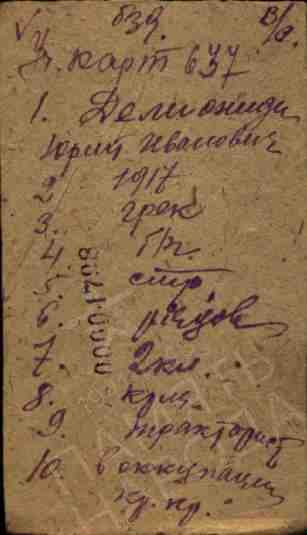 639. в/с.
У. карт 637
1. Делиониди
Юрий Иванович
2 1917
3. грек
4 б/п.
5. стр
6. рядов
7. 2 кл.
8. крщ.
9. тракторист
10. в оккупации
кр. кр.
00001798